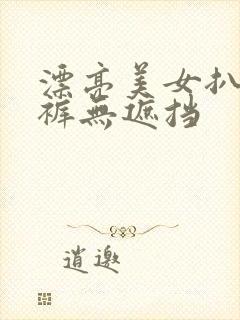 漂亮美女扒
裤無遮挡
逍邀